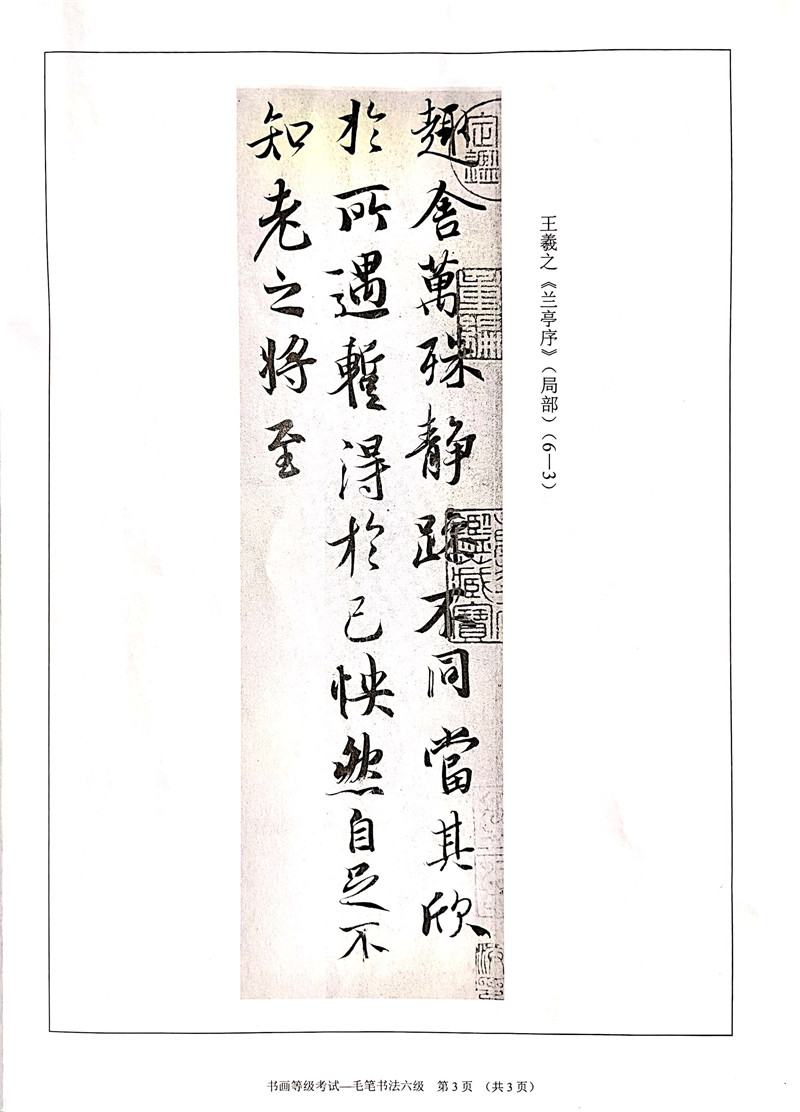 王羲之《兰亭序》（局部）（6—3）
趣舍萬殊静躁不同當其欣
於所遇蹔得於己怏然自足不
知老之将至
书画等级考试—毛笔书法六级 第3页 （共3页）